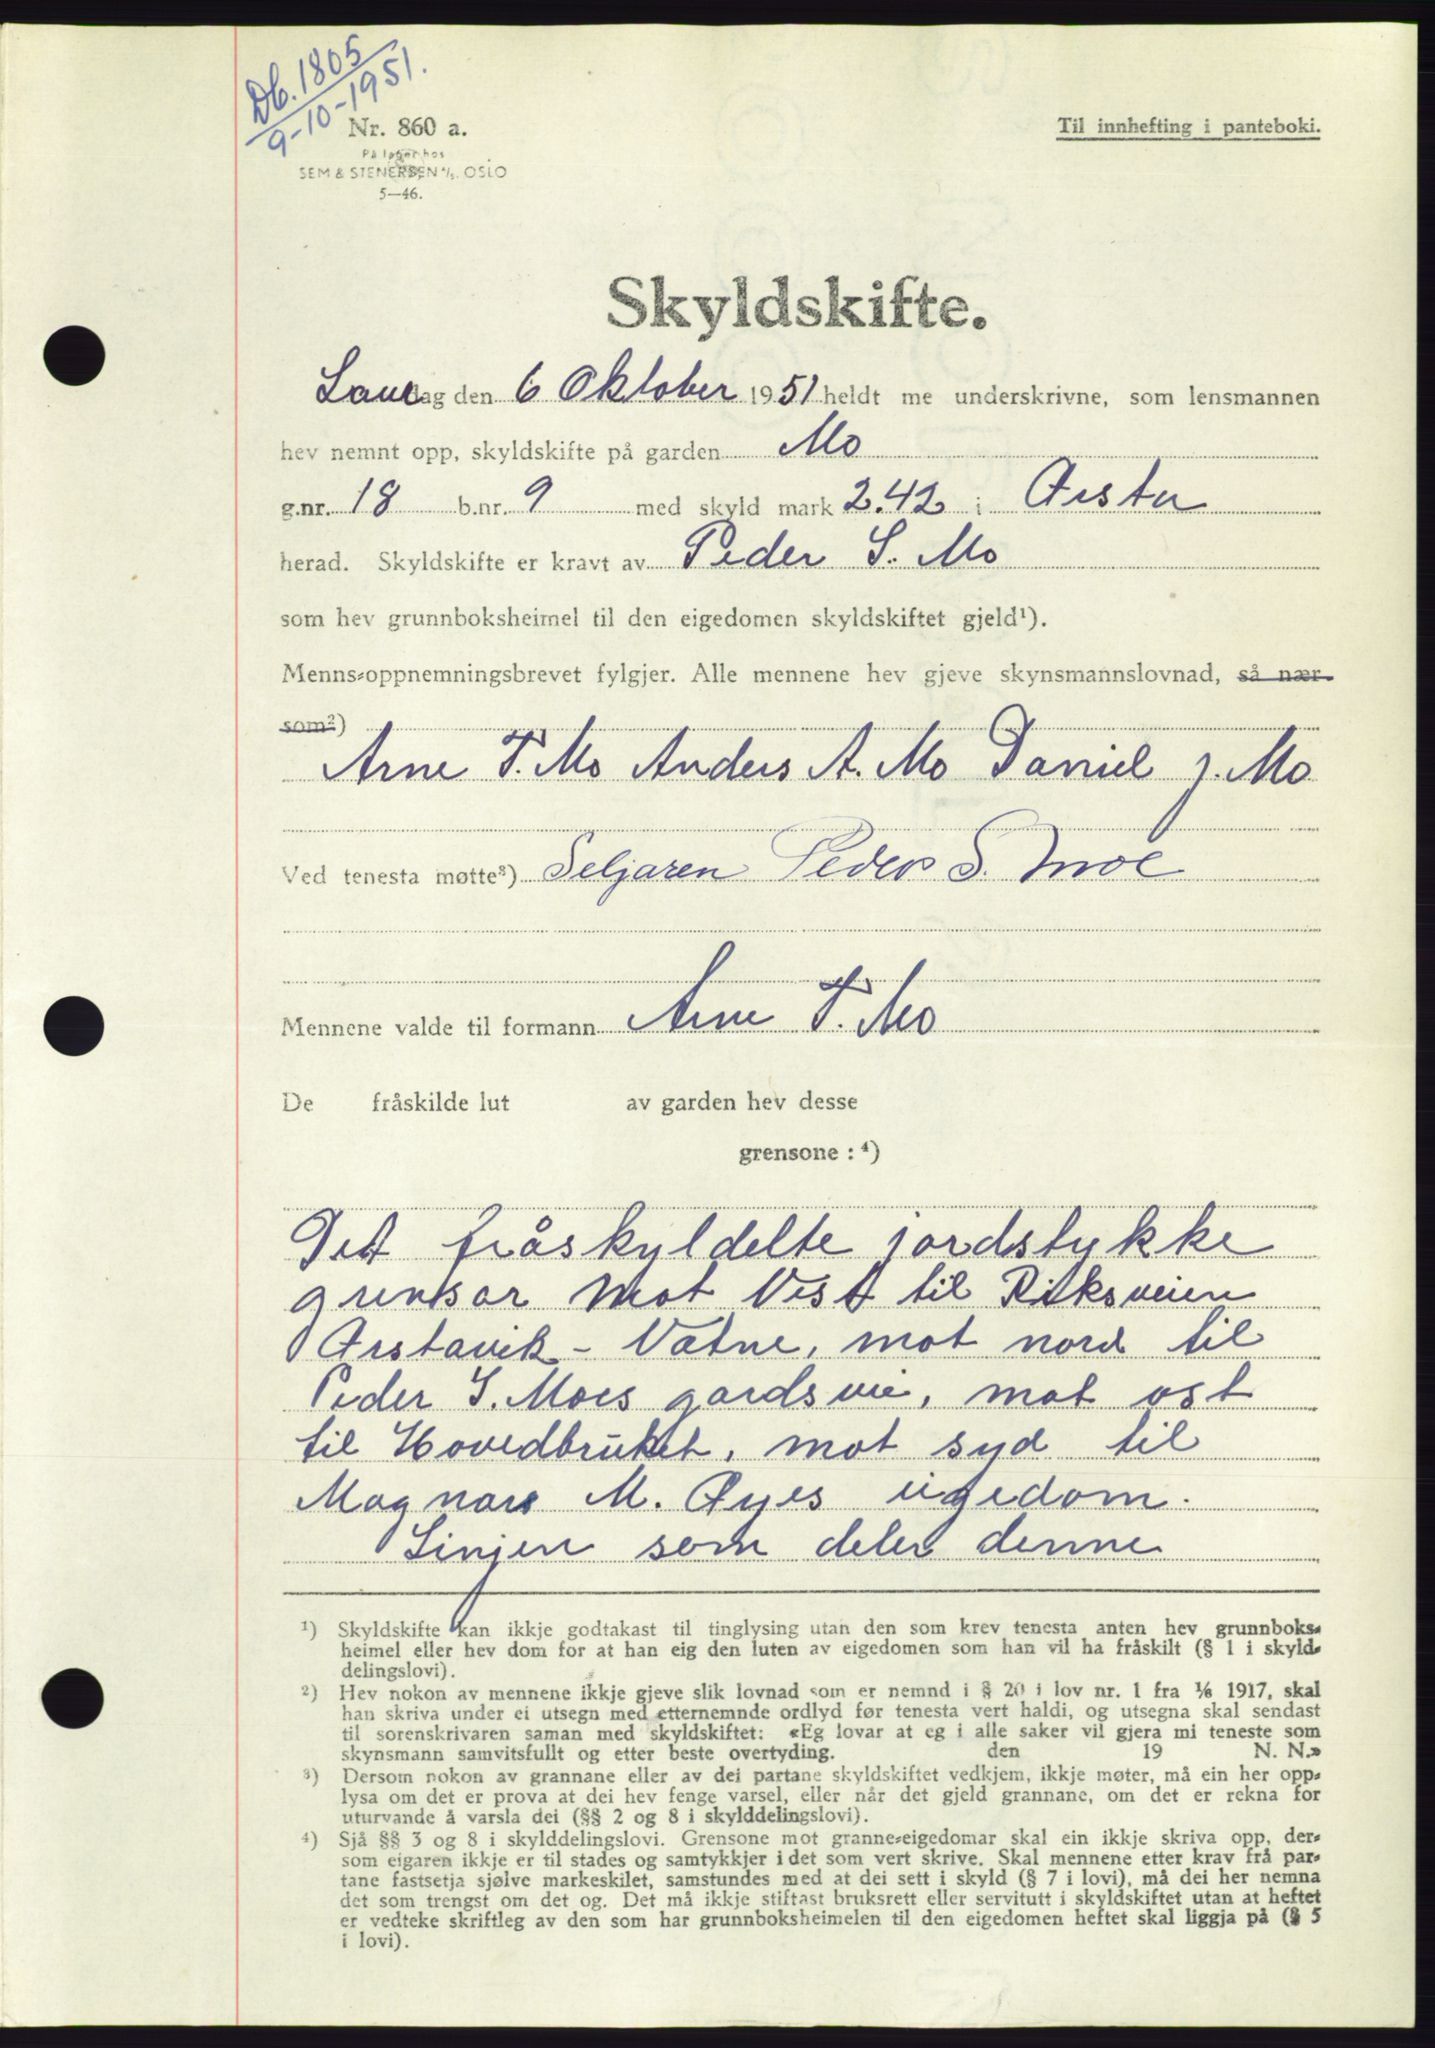 Db. 1805
9-10-1951.
Nr. 860 a.
På lager hos
SEM & STENERSEN A/S. OSLO
5—46.
Til innhefting i panteboki.
Skyldskifte.
Laurdag den 6 Oktober 1951 heldt me underskrivne, som lensmannen
hev nemnt opp, skyldskifte på garden Mo
g.nr. 18 b.nr. 9 med skyld mark 2.42 i Ørsta
herad. Skyldskifte er kravt av Peder S. Mo
som hev grunnboksheimel til den eigedomen skyldskiftet gjeld¹).
Menns-oppnemningsbrevet fylgjer. Alle mennene hev gjeve skynsmannslovnad, så nær
som²)
Arne T. Mo Anders A. Mo Daniel J. Mo
Ved tenesta møtte³) Seljaren Peder S. Moe
Mennene valde til formann Arne T. Mo
De fråskilde lut av garden hev desse
grensone : ⁴)
Det fråskyldelte jordstykke
grensar mot Vest til Riksveien
Ørstavik - Vatne, mot nord til
Peder S. Moes gardsvei, mot øst
til Hovedbruket, mot syd til
Magnar M. Øyes eigedom.
Linjen som deler denne
¹) Skyldskifte kan ikkje godtakast til tinglysing utan den som krev tenesta anten hev grunnboks-
heimel eller hev dom for at han eig den luten av eigedomen som han vil ha fråskilt (§ 1 i skyld-
delingslovi).
²) Hev nokon av mennene ikkje gjeve slik lovnad som er nemnd i § 20 i lov nr. 1 fra ¹/₆ 1917, skal
han skriva under ei utsegn med etternemnde ordlyd før tenesta vert haldi, og utsegna skal sendast
til sorenskrivaren saman med skyldskiftet: «Eg lovar at eg i alle saker vil gjera mi teneste som
skynsmann samvitsfullt og etter beste overtyding. den 19 N. N.»
³) Dersom nokon av grannane eller av dei partane skyldskiftet vedkjem, ikkje møter, må ein her opp-
lysa om det er prova at dei hev fenge varsel, eller når det gjeld grannane, om det er rekna for
uturvande å varsla dei (§§ 2 og 8 i skylddelingslovi).
⁴) Sjå §§ 3 og 8 i skylddelingslovi. Grensone mot granne-eigedomar skal ein ikkje skriva opp, der-
som eigaren ikkje er til stades og samtykkjer i det som vert skrive. Skal mennene etter krav frå par-
tane fastsetja sjølve markeskilet, samstundes med at dei sett i skyld (§ 7 i lovi), må dei her nemna
det som trengst om det og. Det må ikkje stiftast bruksrett eller servitutt i skyldskiftet utan at heftet
er vedteke skriftleg av den som har grunnboksheimelen til den eigedomen heftet skal liggja på (§ 5
i lovi).